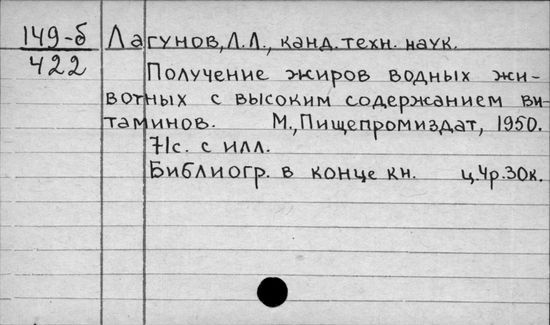 149-б Лагунов, Л.Л., канд. техн. наук.
422
Получение жиров водных жи-
вотных с высоким содержанием ви-
таминов. М., Пищепромиздат, 1950.
71с. с илл.
Библиогр. в конце кн. ц. 4р. 30к.